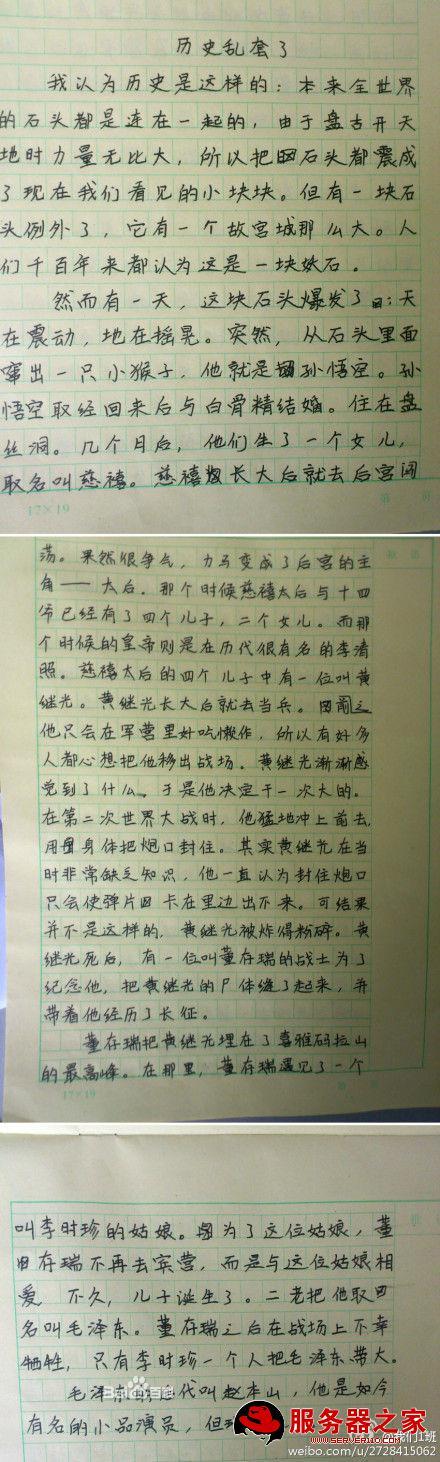 历史乱套了
我认为历史是这样的：本来全世界
的石头都是连在一起的，由于盘古开天
地时力量无比大，所以把石头都震成
了现在我们看见的小块块。但有一块石
头例外了，它有一个故宫城那么大。人
们千百年来都认为这是一块妖石。
然而有一天，这块石头爆发了：天
在震动，地在摇晃。突然，从石头里面
窜出一只小猴子，他就是孙悟空。孙
悟空取经回来后与白骨精结婚。住在盘
丝洞。几个月后，他们生了一个女儿，
取名叫慈禧。慈禧长大后就去后宫闯
17×19
荡。果然很争气，力马变成了后宫的主
角——太后。那个时候慈禧太后与十四
爷已经有了四个儿子，二个女儿。而那
个时候的皇帝则是在历代很有名的李清
照。慈禧太后的四个儿子中有一位叫黄
继光。黄继光长大后就去当兵。
他只会在军营里好吃懒作，所以有好多
人都心想把他移出战场。黄继光渐渐感
觉到了什么，于是他决定干一次大的。
在第二次世界大战时，他猛地冲上前去，
用身体把炮口封住。其实黄继光在当
时非常缺乏知识，他一直认为封住炮口
只会使弹片卡在里边出不来。可结果
并不是这样的，黄继光被炸得粉碎。黄
继光死后，有一位叫董存瑞的战士为了
纪念他，把黄继光的尸体缝了起来，并
带着他经历了长征。
董存瑞把黄继光埋在了喜雅码拉山
的最高峰。在那里，董存瑞遇见了一个
17×19
叫李时珍的姑娘。因为了这位姑娘，董
存瑞不再去宾营，而是与这位姑娘相
爱，不久，儿子诞生了。二老把他取
名叫毛泽东。董存瑞之后在战场上不幸
牺牲，只有李时珍一个人把毛泽东带大。
毛泽东的后代叫赵本山，他是如今
有名的小品演员，但
Bai百科
服务器之家
@我们1班
weibo.com/u/2728415062